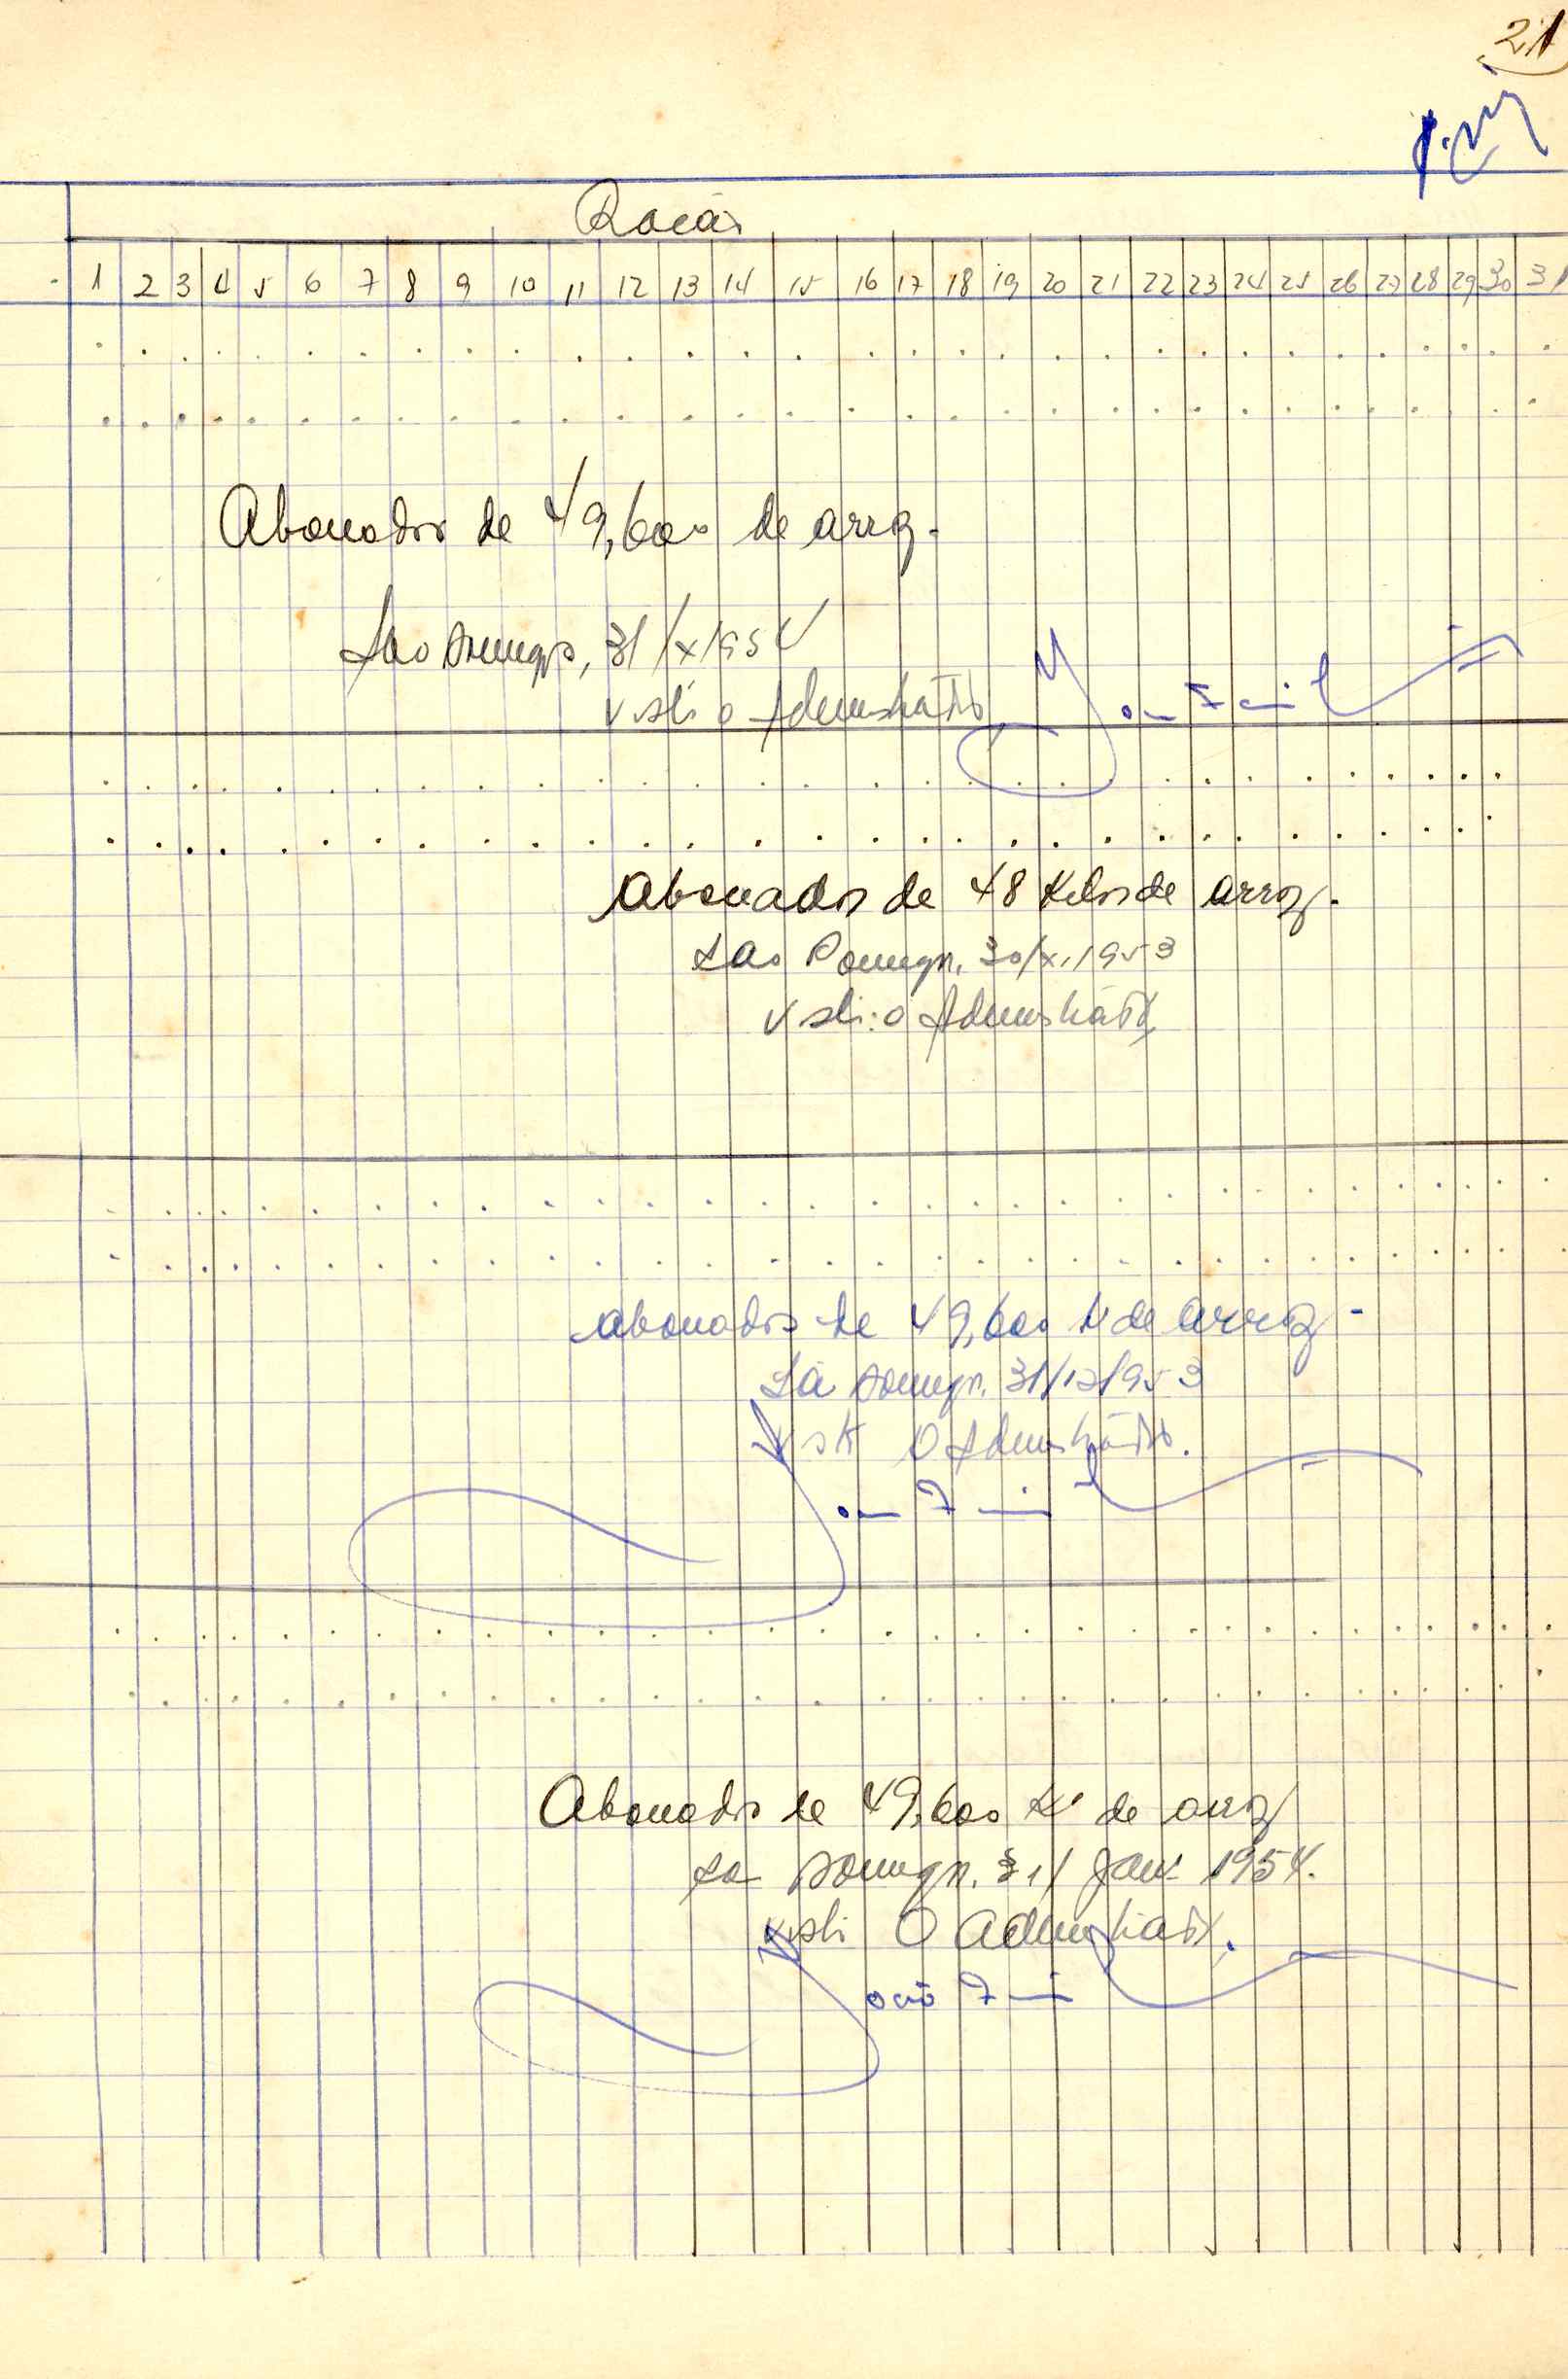 21
1 2 3 4 5 6 7 8 9 10 11 12 13 14 15 16 17 18 19 20 21 22 23 24 25 26 27 28 29 30 31
Abonados de 49,600 de arroz.
São Domingos, 31/X/195
Visto o Administrador
Abonados de 48 Kilos de arroz.
São Domingos, 30/XI/1953
Visto: o Administrador
abonados de 49,600 K de arroz -
São Domingos, 31/12/953
Visto O Administrador.
Abonados de 49,600 K de arroz
São Domingos, 31/ Jan 1954.
Visto O Administrador.
João